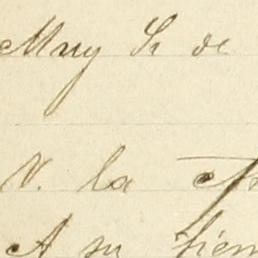 Muy Sr de
V. la
A su tiem